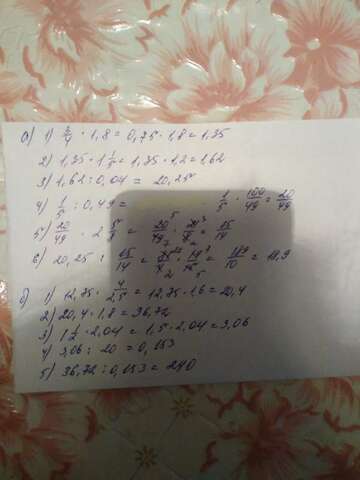 а) 1) 3/4 · 1,8 = 0,75 · 1,8 = 1,35
2) 1,35 · 1 1/5 = 1,35 · 1,2 = 1,62
3) 1,62 : 0,04 = 20,25
4) 1/5 : 0,49 = 1/5 · 100/49 = 20/49
5) 20/49 · 2 5/8 = 20/49 · 21/8 = 15/14
6) 20,25 : 15/14 = 189/10 = 18,9
б) 1) 12,75 · 4/2,5 = 12,75 · 1,6 = 20,4
2) 20,4 · 1,8 = 36,72
3) 1 1/2 · 2,04 = 1,5 · 2,04 = 3,06
4) 3,06 : 20 = 0,153
5) 36,72 : 0,153 = 240